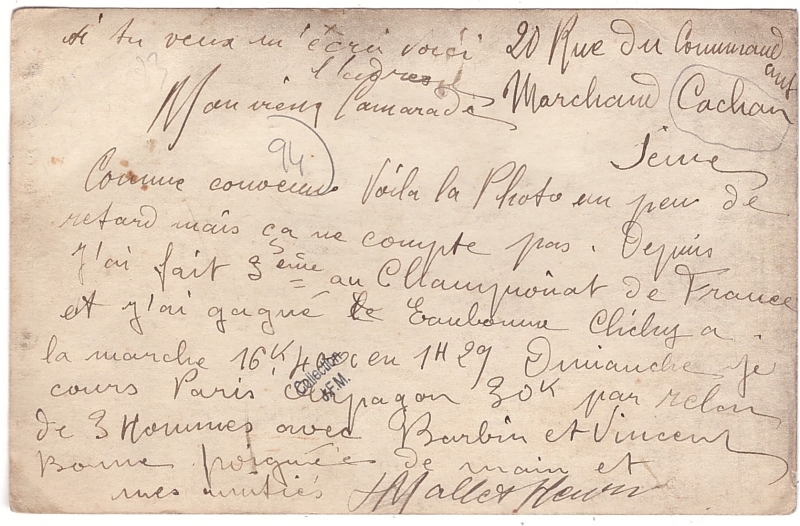 si tu veux m'écrir voici 20 Rue du Command
l'adresse ant
Mon vieux Camarade Marchand Cachan
94 Seine
Comme convenu Voila la Photo un peu de
retard mais ça ne compte pas. Depuis
j'ai fait 3ème au Championat de France
et j'ai gagné le Eaubonne Clichy a
la marche 16K 4 en 1H29 Dimanche je
cours Paris 30K par relai
Collection
F.M.
de 3 Hommes avec Barbin et Vincent
Bonne poignées de main et
mes amitiés HMallet Henri